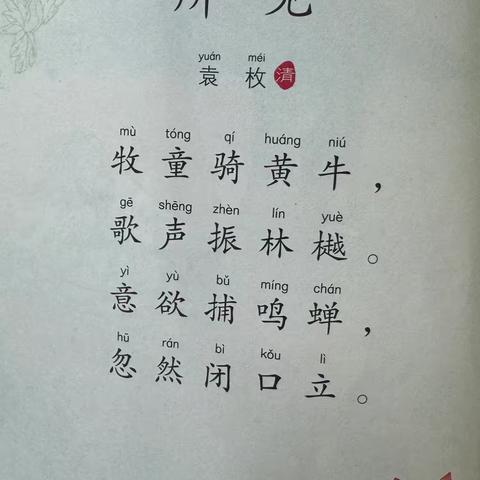 所见
yuán méi
袁枚 清
mù tóng qí huáng niú
牧童骑黄牛，
gē shēng zhèn lín yuè
歌声振林樾。
yì yù bǔ míng chán
意欲捕鸣蝉，
hū rán bì kǒu lì
忽然闭口立。